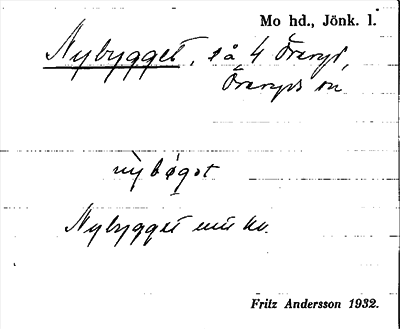 Mo hd., Jönk. l.
Nybygget, lå 4 Öreryd,
Öreryds sn
nỳbøgət
Nybygget
Fritz Andersson 1932.